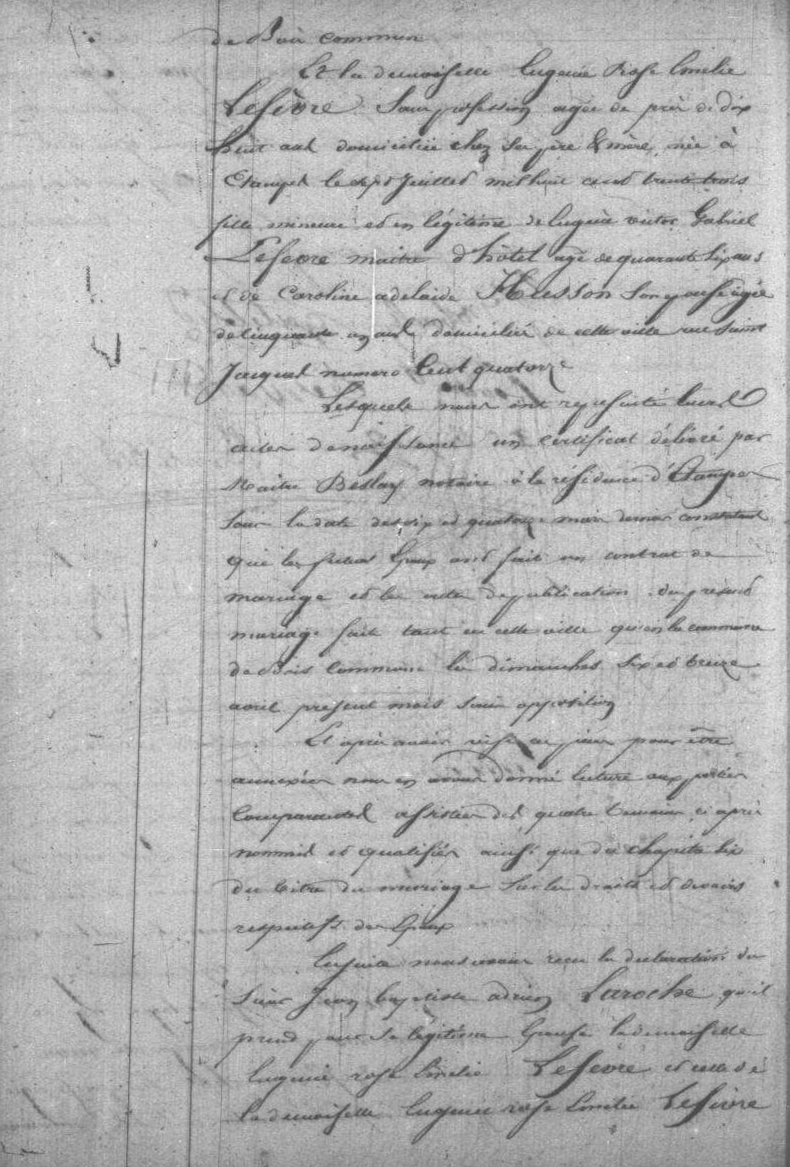 de Bois commun
Et la demoiselle Eugenie Rose Emelie
Lefèvre Sans profession agée de près de dix
huit ans domiciliée chez ses père & mère, née à
Etampes le sept Juillet mil huit cent trente trois
fille mineure et en légitime de Eugène victor Gabriel
Lefevre maitre d'hôtel agé de quarante six ans
et de Caroline adelaide Husson Son epouse agée
de cinquante un ans domiciliés de cette ville rue Saint
Jacques numero Cent quatorze
Lesquels nous ont representé leurs
actes de naissance un certificat délivré par
Maitre Bellay notaire à la résidence d'Etampes
Sous la date des dix et quatorze mars dernier constatant
que les futurs Epoux ont fait un contrat de
mariage et les actes de publication du present
mariage fait tant en cette ville qu'en la commune
de Bois commun les dimanches Six et treize
avril present mois sans opposition
Et après avoir visé ces pièces pour être
annexées nous en avons donné lecture aux parties
Comparantes assistées des quatre temoins ci après
nommés et qualifiés ainsi que du chapitre Six
du titre du mariage Sur les droits et devoirs
respectifs des Epoux
Ensuite nous avons reçu la declaration du
Sieur Jean baptiste adrien Laroche qu'il
prend pour Sa légitime Epouse la demoiselle
Eugenie rose Emelie Lefevre et celle de
la demoiselle Eugenie rose Emelie Lefevre